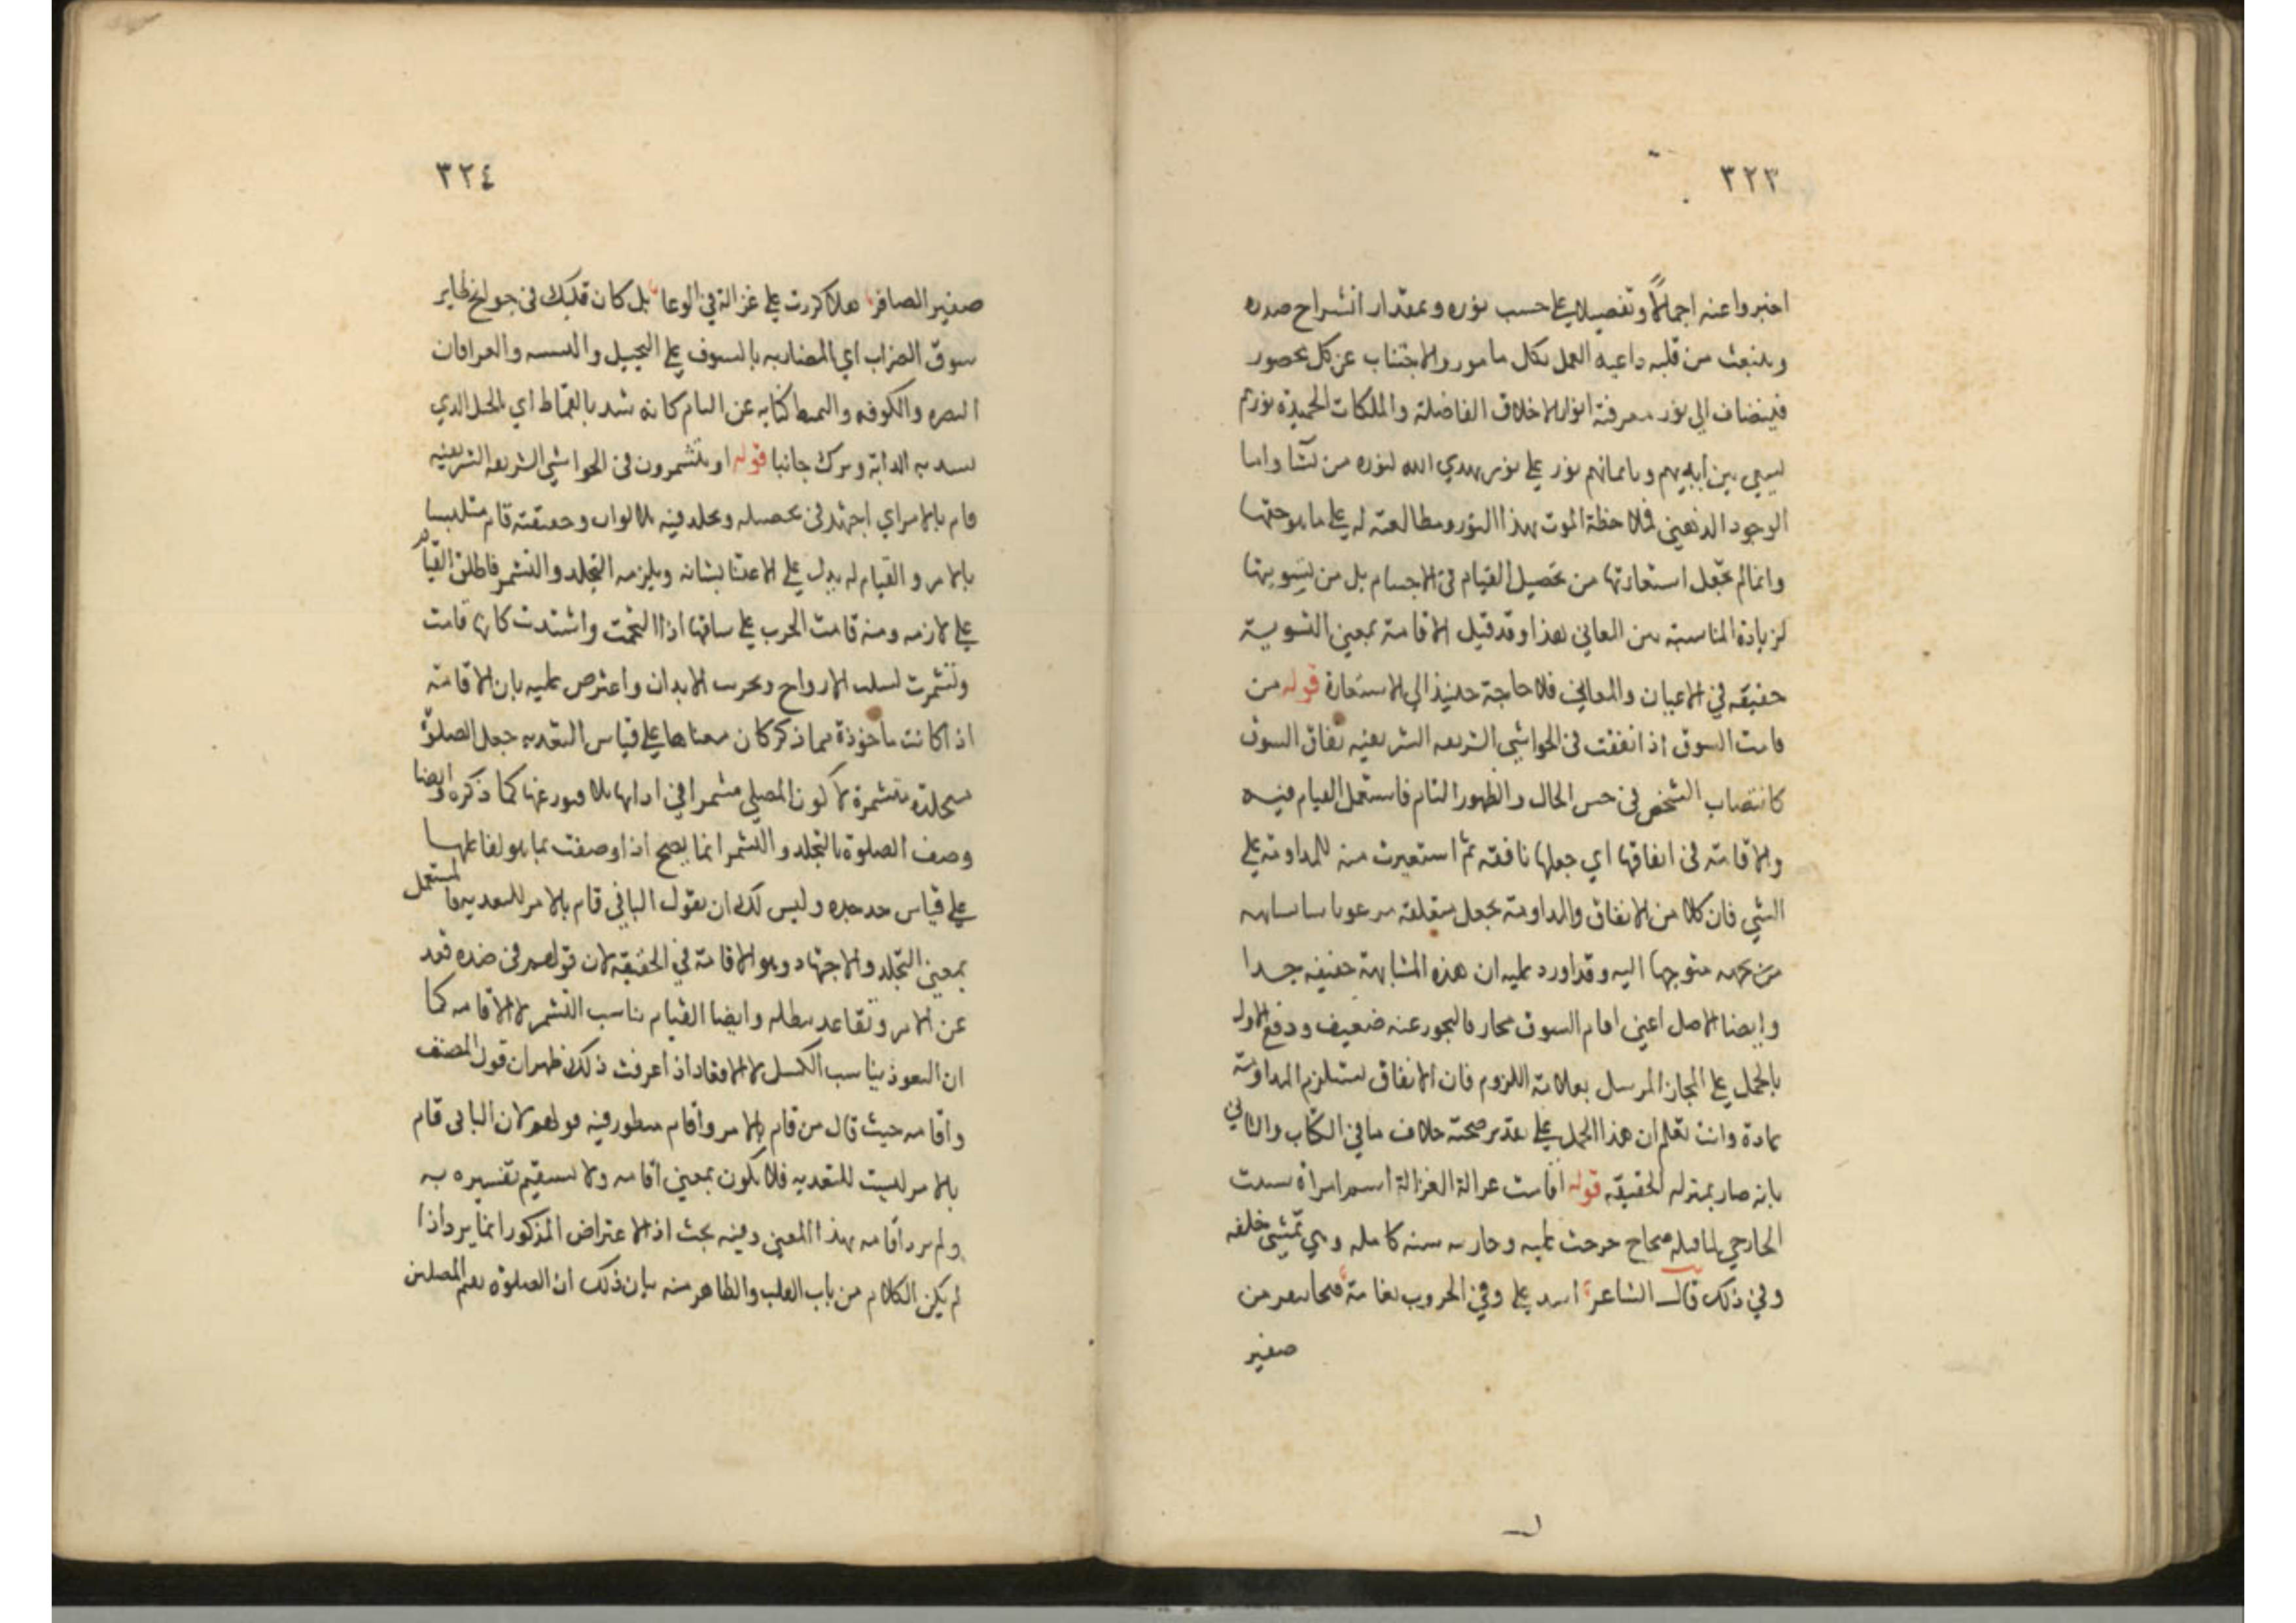 ٣٢٣
اخبروا عنه اجمالاً وتفصيلا علي حسب نوره وبمقدار انشراح صدره
وينبعث من قلبه داعية العمل بكل مامور والاجتناب عن كل محصور
فينضاف الي نور معرفته انوار الاخلاق الفاضلة والملكات الحميدة نورهم
يسعي بين ايديهم وبايمانهم نور علي نور يهدي الله لنوره من يشا واما
الوجود الذهني فملاحظة الموت بهذا النور ومطالعته له علي ما هو حقها
وانما لم تجعل استعارتها من تحصيل القيام في الاجسام بل من تسويتها
لزيادة المناسبة بين المعاني هذا وقد قيل الاقامة بمعني التسوية
حقيقه في الاعيان والمعاني فلا حاجة حينئذ الي الاستعارة قوله من
قامت السوق اذا نفقت في الحواشي الشريفه الشريفيه نفاق السوق
كانتصاب الشخص في حسن الحال والظهور التام فاستعمل القيام فيه
والاقامة في انفاقها اي جعلها نافقه ثم استعيرت منه للمداومة علي
الشي فان كلا من الانفاق والمداومة يجعل متعلقه مرغوبا
متوجها اليه وقد اورد عليه ان هذه المشابهة خفيفه جدا
وايضا الاصل اعني اقام السوق مجاز فالتجوز عنه ضعيف ودفع الاول
بالحمل علي المجاز المرسل بعلاقة اللزوم فان الانفاق يستلزم المداومة
عادة وانت تعلم ان هذا الحمل علي تقدير صحته خلاف ما في الكتاب والثاني
بانه صار بمنزله الحقيقه قوله اقامت غزالة الغزالة اسم امراة شبيب
الخارجي لما قتله حجاج خرجت عليه وحاربته سنه كامله وهي تمشي خلفه
وفي ذلك قال الشاعر اسد علي وفي الحروب نعامة فتخاء تنفر من
صفير
٣٢٤
صفير الصافر هلا كررت علي غزالة في الوغا بل كان قلبك في جوانح طاير
سوق الضراب اي المضاربه بالسيوف علي التخييل والتشبيه والعراقان
البصره والكوفه والقمط كنايه عن التام كانه شد بالقماط اي الحبل الذي
يشد به الدابة وترك جانبا قوله او يتشمرون في الحواشي الشريفه الشريفيه
قام بالامر اي اجتهد في تحصيله وتجلد فيه بلا توان وحقيقته قام متلبسا
بالامر والقيام له يدل علي الاعتنا بشانه ويلزمه التجلد والتشمر فاطلق القيام
علي لازمه ومنه قامت الحرب علي ساقها اذا التحمت واشتدت كانها قامت
وتشمرت لسلب الارواح وتخريب الابدان واعترض عليه بان الاقامة
اذا كانت ماخوذة مما ذكر كان معناها علي قياس التعديه جعل الصلوة
متجلدة متشمرة لا كون المصلي متشمرا في ادايها بلا فتور عنها كما ذكره وايضا
وصف الصلوة بالتجلد والتشمر انما يصح اذا وصفت بما هو لفاعلها
علي قياس جد جده وليس لك ان تقول الباء في قام بالامر للتعديه فالمستعمل
بمعني التجلد والاجتهاد وهو الاقامة في الحقيقه لان قولهم في ضده قعد
عن الامر وتقاعد يبطله وايضا القيام يناسب التشمر لا الاقامه كما
ان القعود يناسب الكسل لا الاقعاد اذا عرفت ذلك ظهر ان قول المصنف
واقامه حيث قال من قام بالامر واقامه منظور فيه قولهم لان الباء في قام
بالامر ليست للتعديه فلا يكون بمعني اقامه ولا يستقيم تفسيره به
ولم يرد اقامه بهذا المعني وفيه بحث اذ الاعتراض المذكور انما يرد اذا
لم يكن الكلام من باب القلب والظاهر منه بان ذلك ان الصلوة نعم المصلين